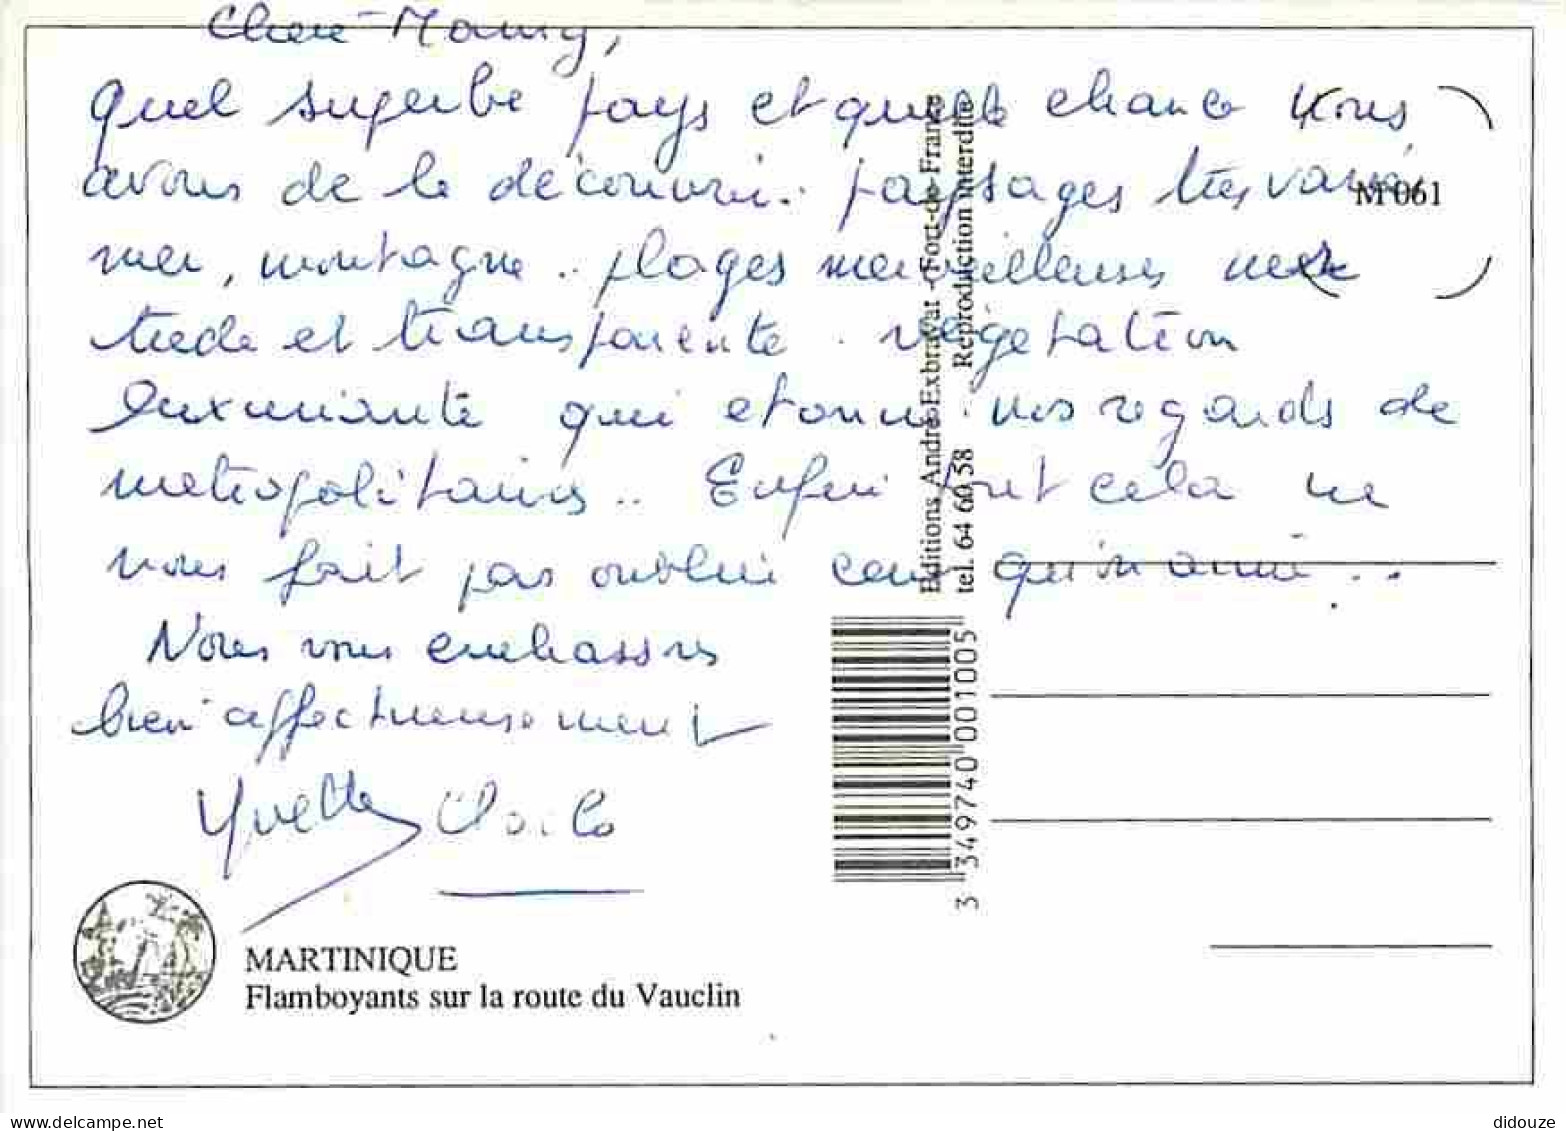 Chère Mamy,
Quel superbe pays et quelle chance nous
avons de le découvrir. paysages très variés,
mer, montagne.. plages merveilleuses mer
tiède et transparente. végétation
luxuriante qui etonne nos regards de
metropolitains.. Enfin tout cela ne
nous fait pas oublier ceux qu'on aime...
Nous vous embrassons
bien affectueusement
Yvette
MARTINIQUE
Flamboyants sur la route du Vauclin
Editions André Exbrayat - Fort-de-France
tel. 64 60 58 Reproduction interdite
M 061
3 349740 001005
delcampe.net
didouze